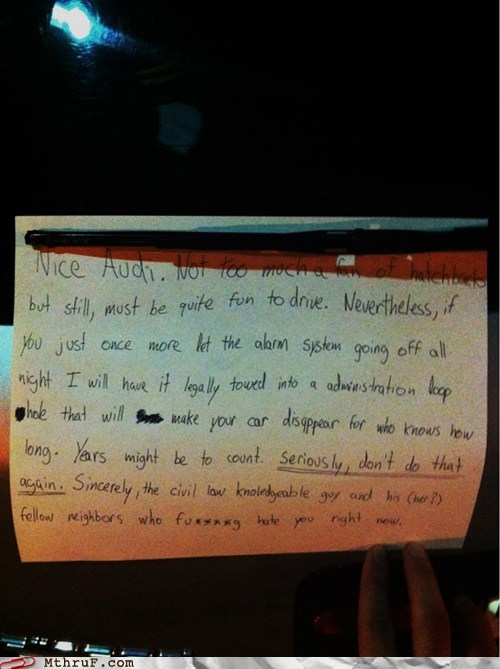 Nice Audi. Not too much a fan of hatchbacks
but still, must be quite fun to drive. Nevertheless, if
you just once more let the alarm system going off all
night I will have it legally towed into a administration loop
hole that will make your car disappear for who knows how
long. Years might be to count. Seriously, don't do that
again. Sincerely, the civil law knoledgeable guy and his (her?)
fellow neighbors who fu****g hate you right now.
MThruF.com